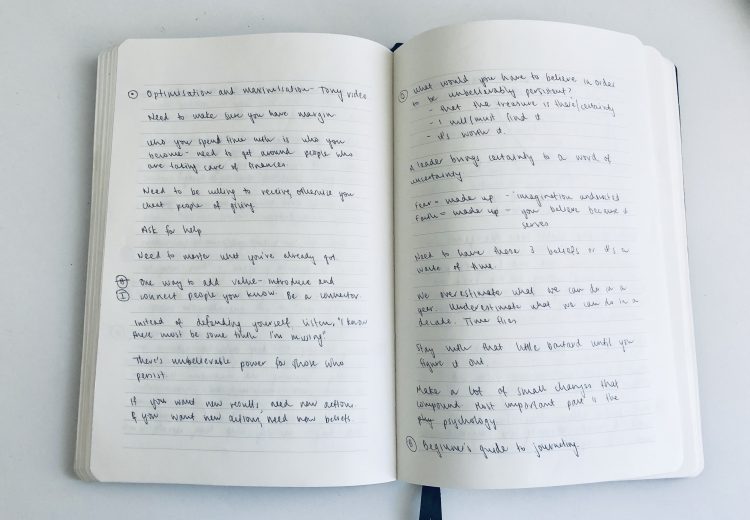 Optimisation and maximisation - Tony video
Need to make sure you have margin
Who you spend time with is who you
become - need to get around people who
are taking care of finances
Need to be willing to receive, otherwise you
cheat people of giving
Ask for help
Need to master what you've already got
One way to add value - introduce and
connect people you know. Be a connector.
Instead of defending yourself, listen, "I know
there must be some truth I'm missing"
There's unbelievable power for those who
persist.
If you want new results, need new actions
& you want new actions, need new beliefs.
What would you have to believe in order
to be unbelievably persistent?
- that the treasure is there/certainty
- I will/must find it
- it's worth it.
A leader brings certainty to a word of
uncertainty
Fear = made up - imagination undirected
Faith = made up - you believe because it
serves
Need to have those 3 beliefs or it's a
waste of time
We overestimate what we can do in a
year. Underestimate what we can do in a
decade. Time flies
Stay with that little bastard until you
figure it out
Make a lot of small changes that
compound. Most important part is the
psychology
Beginner's guide to journaling